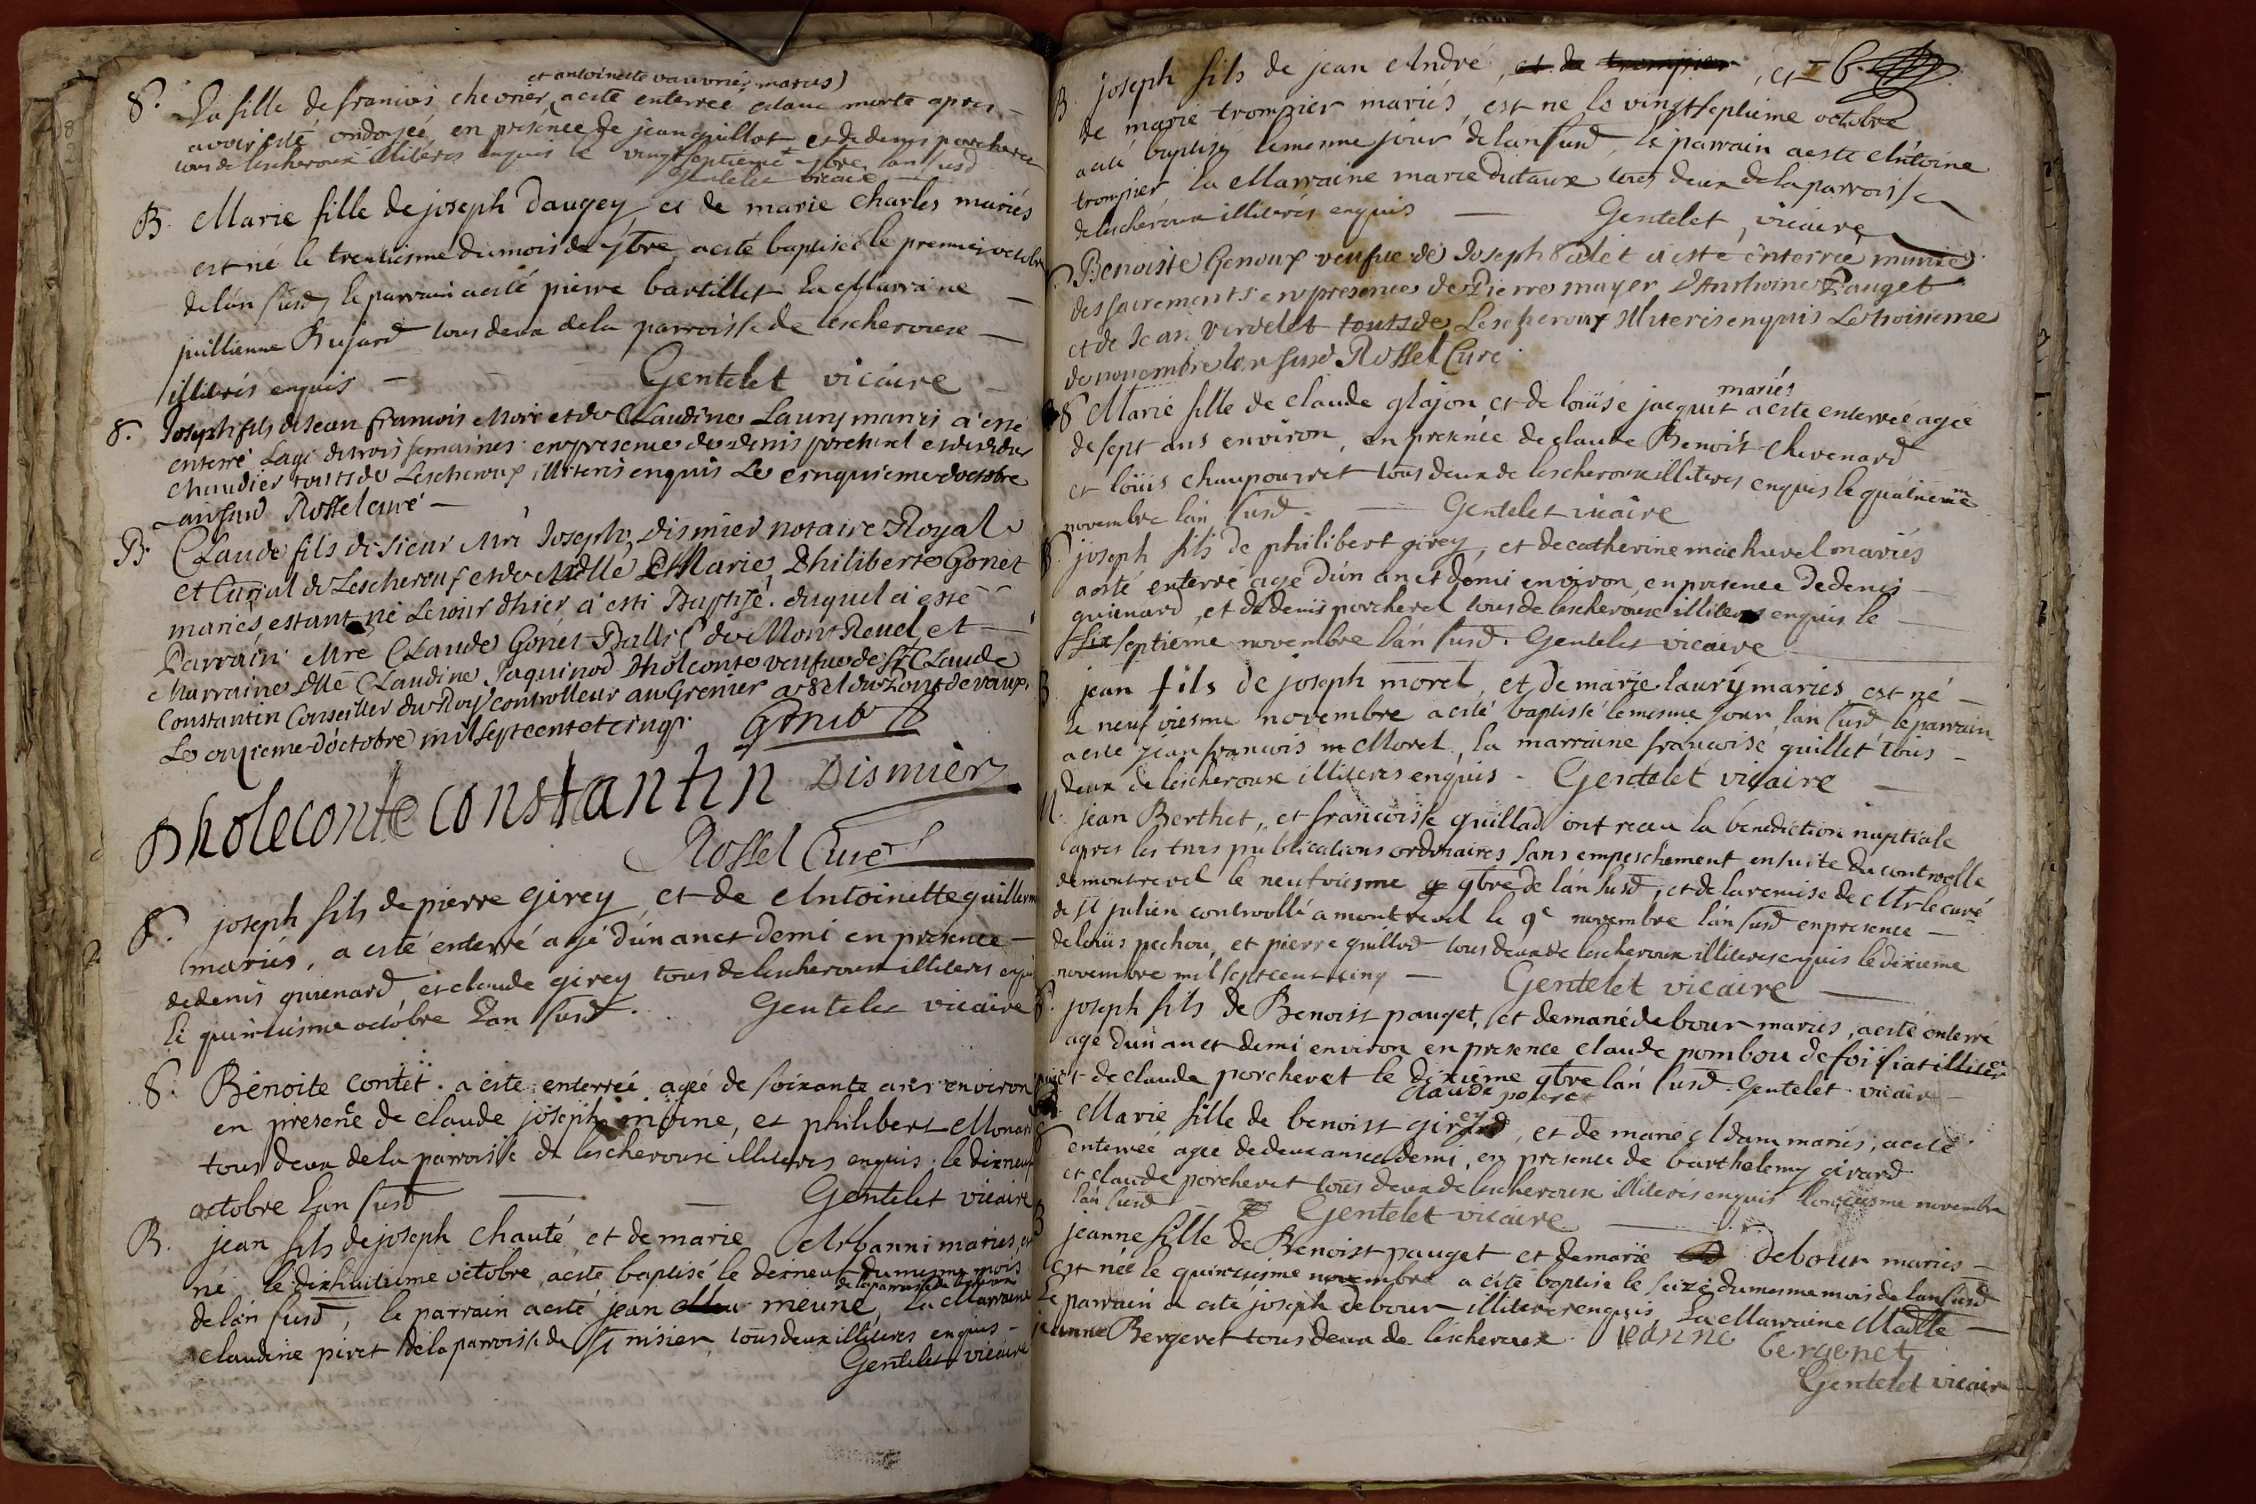 et antoinette vauvrier mariés
8. La fille de francois chevrier a esté enterrée estant morte apres
avoir esté ondoyée en présence de jean guillot et de denys porcheret
tous de lescheroux illiteres enquis le vingt septieme 7bre lan susd
Gentelet vicaire
B. Marie fille de joseph daugey et de marie charles mariés
est né le trentiesme du mois de 7bre a esté baptisée le premier octobre
de lán susd, le parrain a esté pierre bartillet La Marraine
juillienne Bujard tous deux de la parroisse de lescherouse
illiterés enquis — Gentelet vicaire
8. Joseph fils de Jean francois More et de Claudine Laury mariés a esté
enterré Lagé de trois semaines en presence de denis porcheret et de
chaudier touts de Lescheroux illiteris enquis Le cinquieme doctobre
lan susd Rossel curé —
B. Claude fils de sieur Mre Joseph Dismier notaire Royal
et Curial de Lescheroux et de Madlle Marie Philiberte Gonet
mariés estant né Le iour dhier a esté Baptisé. duquel a esté
Parrain Mre Claude Gonet Baillif de Mont Revel et
Marraine Dlle Claudine Jaquinod Dholconte veufue de Sr Claude
Constantin Conseiller du Roy controlleur au Grenier a sel du Pont de vaux.
Le onzieme d'octobre mil sept cent et cinq. Gonet
Dholeconte constantin Dismier
Rossel Curé
8. joseph fils de pierre girey et de Antoinette guillerm
mariés, a esté enterré agé dún an et demi en presence
de denis guienard et claude girey tous de lescheroux illiteres enqui
le quinziesme octóbre Lan susd. Gentelet vicaire
8. Bénoite contet. a esté enterreé ageé de soixante ans environ
en presence de claude joseph moine, et philibert Monar
tous deux de la parroisse de lescherouse illiteres enquis le dixneuf
octobre Lan susd — Gentelet vicaire
B. jean fils de joseph chauté, et de marie Arbanni mariés, est
né le dixhuitieme octobre, a esté baptisé le dixneuf du mesme mois
de la parroisse de
de lán susd, le parrain a esté jean meuné, La Marraine
claudine piret de la parroisse de St nisier tous deux illiteres enquis —
Gentelet vicaire
B. joseph fils de jean André, et de trompier, et
de marie trompier mariés, est ne le vingtseptieme octobre
a esté baptisé lemesme jour de lan susd, le parrain a esté Antoine
trompier la Marraine marie dutaux tous deux de la parroisse
de lescheroux illiterés enquis — Gentelet, vicaire
8. Benoiste Genoux veufue de Joseph a esté enterrée munie
des sacrements en presence de Pierre mayer D'Anthoine Pauget
et de Jean vervelet touts de Lescheroux illiteris enquis Le troisieme
de novembre lan susd Rossel Curé.
mariés
8 Marie fille de claude glajon et de loüise jacquet a esté enterreé agée
de sept ans environ, en presence de claude Benoist chevenard
et loüis chaupourret tous deux de lescherouse illiteres enquis le quatrieme
novembre lán susd. — Gentelet vicaire
8. joseph fils de philibert girey, et de catherine machurel mariés
a esté enterré agé dún an et démi environ, en presence de denis
guienard, et de denis porcherel tous de lescherouse illiteres enquis le
six septieme novembre lán susd. Gentelet vicaire
B. jean fils de joseph morel, et de marie laury mariés, est né —
le neufviesme novembre a esté baptissé lemesme jour lán susd le parrain
a esté jean francois m Morel, la marraine francoise guillet tous —
deux de lescherouse illiteres enquis - Gentelet vicaire
M. jean Berthet, et francoise guillad ont receu la bénediction nuptiale
apres les trois publications ordinaires sans empeschement ensuite du controolle
de montrevel le neufviesme 9bre de lán susd, et de la remise de Mr le curé
de St julien controollé a montrevel le 9e novembre lán susd en presence —
de loüis pechou, et pierre guillod tous deux de lescheroux illiteres enquis le dixieme
novembre mil sept cent cinq — Gentelet vicaire —
8. joseph fils de Benoist pauget, et de marie debour mariés, a esté enterré
agé dún an et demi environ en presence claude pombou de foissiat illiter
et de claude porcheret le dixieme 9bre lán susd. Gentelet vicaire
8. Marie fille de benoist girey, et de marie Adam mariés, a esté
enterreé agée de deux ans et demi, en presence de barthelemy girard
et claude porcheret tous deux de lescherouse illiterés enquis lonziesme novembre
lán susd — Gentelet vicaire —
B jeanne fille de Benoist pauget et de marie debour mariés —
est née le quinziesme novembre a esté baptise le seize du mesme mois de lan susd
Le parrain a esté joseph debour illiteré enquis La Marraine Madlle —
jeanne Bergeret tous deux de lescheroux. jeanne bergeret
Gentelet vicaire